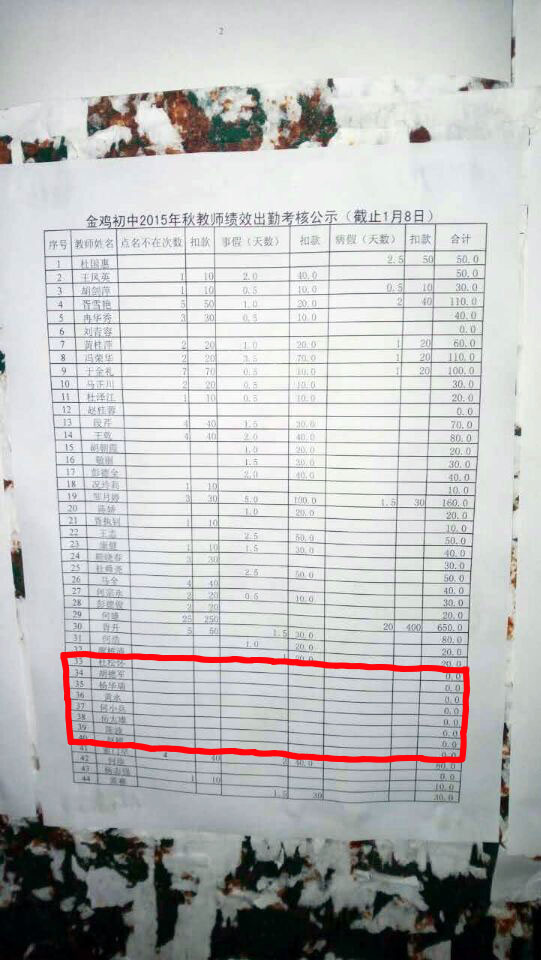 2
金鸡初中2015年秋教师绩效出勤考核公示（截止1月8日）
序号 教师姓名 点名不在次数 扣款 事假（天数） 扣款 病假（天数） 扣款 合计
1 杜国惠 2.5 50 50.0
2 王凤英 1 10 2.0 40.0 50.0
3 胡剑萍 1 10 0.5 10.0 0.5 10 30.0
4 胥雪艳 5 50 1.0 20.0 2 40 110.0
5 冉华秀 3 30 0.5 10.0 40.0
6 刘青容 0.0
7 黄桂萍 2 20 1.0 20.0 1 20 60.0
8 冯荣华 2 20 3.5 70.0 1 20 110.0
9 于金礼 7 70 0.5 10.0 1 20 100.0
10 马正川 2 20 0.5 10.0 30.0
11 杜泽江 1 10 0.5 10.0 20.0
12 赵桂蓉 0.0
13 段芹 4 40 1.5 30.0 70.0
14 王乾 4 40 2.0 40.0 80.0
15 胡朝霞 1.0 20.0 20.0
16 1.5 30.0 30.0
17 彭德全 2.0 40.0 40.0
18 况玲莉 1 10 10.0
19 邹月婷 3 30 5.0 100.0 1.5 30 160.0
20 陈娇 1.0 20.0 20.0
21 1 10 10.0
22 王志 2.5 50.0 50.0
23 1 10 1.5 30.0 40.0
24 3 30 30.0
25 2.5 50.0 50.0
26 马全 4 40 40.0
27 何宗永 2 20 0.5 10.0 30.0
28 彭德俊 2 20 20.0
29 何雄 25 250 20 400 650.0
30 胥升 5 50 1.5 30.0 80.0
31 何浩 1.0 20.0 20.0
32 20.0 20.0
33 杜松怀 0.0
34 胡德军 0.0
35 杨华瑞 0.0
36 黄永 0.0
37 何小兵 0.0
38 0.0
39 陈波 0.0
40 0.0
41 4 40 2 40.0 80.0
42 何琼 0.0
43 1 10 10.0
44 1.5 30 30.0